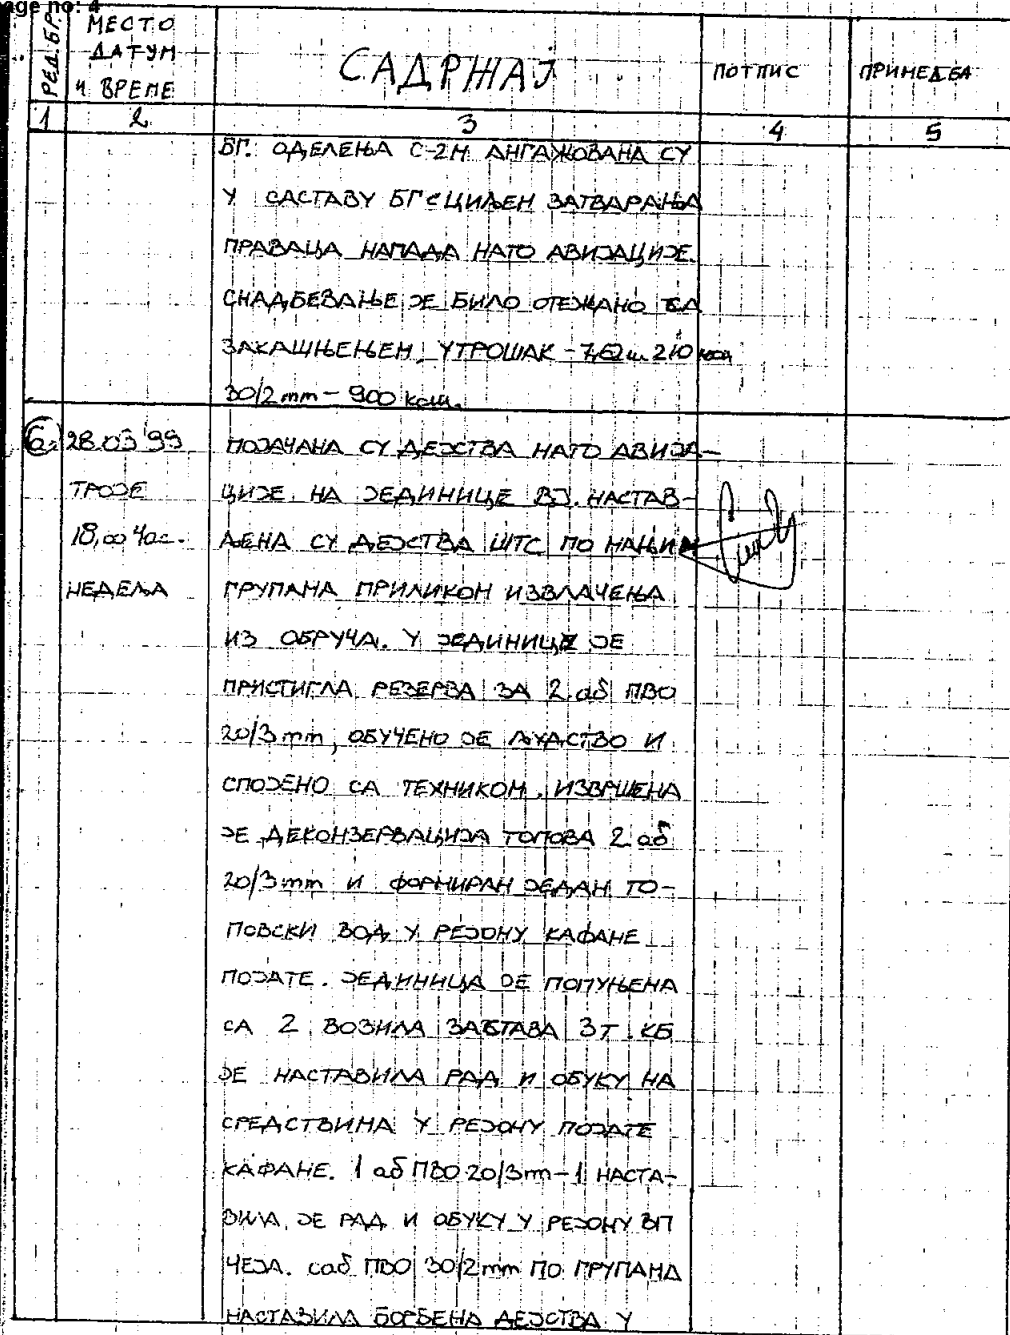 age no: 4
РЕД. БР.
МЕСТО
ДАТУМ
И ВРЕМЕ
САДРЖАЈ
ПОТПИС
ПРИМЕДБА
1
2
3
4
5
БГ. ОДЕЛЕЊА С-2М АНГАЖОВАНА СУ
У САСТАВУ БГ С ЦИЉЕМ ЗАТВАРАЊА
ПРАВАЦА НАПАДА НАТО АВИЈАЦИЈЕ.
СНАДБЕВАЊЕ ЈЕ БИЛО ОТЕЖАНО СА
ЗАКАШЊЕЊЕМ. УТРОШАК - 7,62 210 ком
30/2 mm - 900 ком.
6. 28.03.99
ТРОЈЕ
18,00 час.
НЕДЕЉА
ПОЈАЧАНА СУ ДЕЈСТВА НАТО АВИЈА-
ЦИЈЕ НА ЈЕДИНИЦЕ ВЈ. НАСТАВ-
ЉЕНА СУ ДЕЈСТВА ШТС ПО МАЊИМ
ГРУПАМА ПРИЛИКОМ ИЗВЛАЧЕЊА
ИЗ ОБРУЧА. У ЈЕДИНИЦЕ ЈЕ
ПРИСТИГЛА РЕЗЕРВА ЗА 2. аб ПВО
20/3 mm, ОБУЧЕНО ЈЕ ЉУДСТВО И
СПОЈЕНО СА ТЕХНИКОМ. ИЗВРШЕНА
ЈЕ ДЕКОНЗЕРВАЦИЈА ТОПОВА 2 аб
20/3 mm И ФОРМИРАН ЈЕДАН ТО-
ПОВСКИ ВОД У РЕЈОНУ КАФАНЕ
ПОЈАТЕ. ЈЕДИНИЦА ЈЕ ПОПУЊЕНА
СА 2 ВОЗИЛА ЗАСТАВА 3Т. КБ
ЈЕ НАСТАВИЛА РАД И ОБУКУ НА
СРЕДСТВИМА У РЕЈОНУ ПОЈАТЕ
КАФАНЕ. 1 аб ПВО 20/3 mm-1 НАСТА-
ВИЛА ЈЕ РАД И ОБУКУ У РЕЈОНУ ВП
ЧЕЈА. саб ПВО 30/2 mm ПО ГРУПАМА
НАСТАВИЛА БОРБЕНА ДЕЈСТВА У